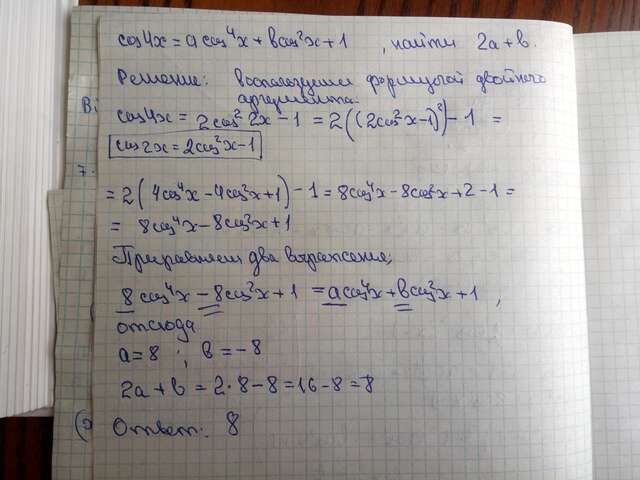 cos4x = a cos⁴x + b cos²x + 1 , найти 2a + b.
Решение: воспользуемся формулой двойного
аргумента.
cos4x = 2cos²2x - 1 = 2((2cos²x - 1)²) - 1 =
cos2x = 2cos²x - 1
= 2(4cos⁴x - 4cos²x + 1) - 1 = 8cos⁴x - 8cos²x + 2 - 1 =
= 8cos⁴x - 8cos²x + 1
Приравняем два выражения;
8cos⁴x - 8cos²x + 1 = a cos⁴x + b cos²x + 1 ,
отсюда
a = 8 ; b = -8
2a + b = 2·8 - 8 = 16 - 8 = 8
Ответ: 8